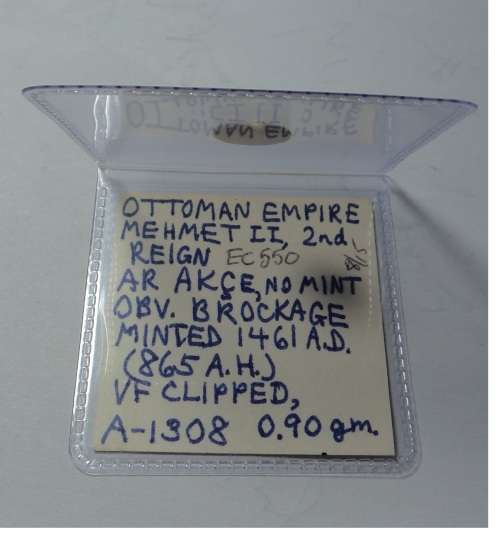 OTTOMAN EMPIRE
MEHMET II, 2nd
REIGN EC550
AR AKÇE, NO MINT
OBV. BROCKAGE
MINTED 1461 A.D.
(865 A.H.)
VF CLIPPED,
A-1308 0.90 gm.